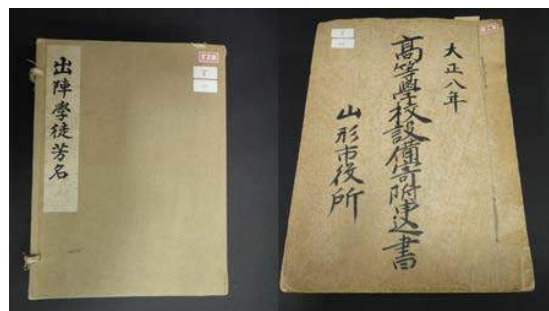 出陣學徒芳名
大正八年
高等學校設備寄附申込書
山形市役所